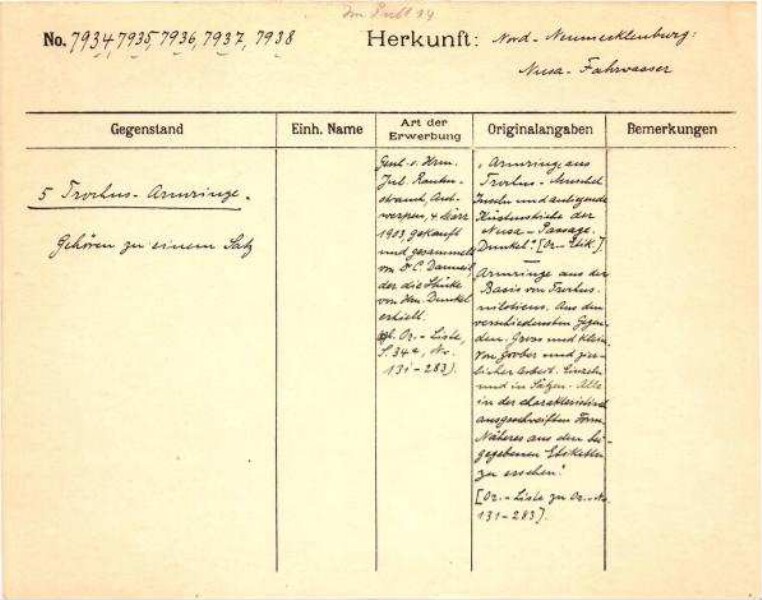 Im Publ 14
No. 7934, 7935, 7936, 7937, 7938
Herkunft: Nord-Neumecklenburg:
Nusa-Fahrwasser
Gegenstand
Einh. Name
Art der
Erwerbung
Originalangaben
Bemerkungen
5 Trochus-Armringe.
Gehören zu einem Satz
Gesch. v. Hrn.
Jul. Rauten-
strauch, Ant-
werpen, 4. März
1903, gekauft
und gesammelt
von Dr. C. Danneil,
der die Stücke
von Hrn. Dunkel
erhielt.
vgl. Or.-Liste,
S. 34a, No.
131-283).
"Armringe aus
Trochus-Muschel
Inseln und anliegende
Küstenstriche der
Nusa-Passage.
Dunkel." [Or-Etik.].
"Armringe aus der
Basis von Trochus
niloticus. Aus den
verschiedensten Gegen-
den. Gross und klein.
Von grober und zier-
licher Arbeit. Einzeln
und in Sätzen. Alle
in der charakteristisch
ausgeschweiften Form.
Näheres aus den bei-
gegebenen Etiketten
zu ersehen."
[Or.-Liste zu Or.-No.
131-283].